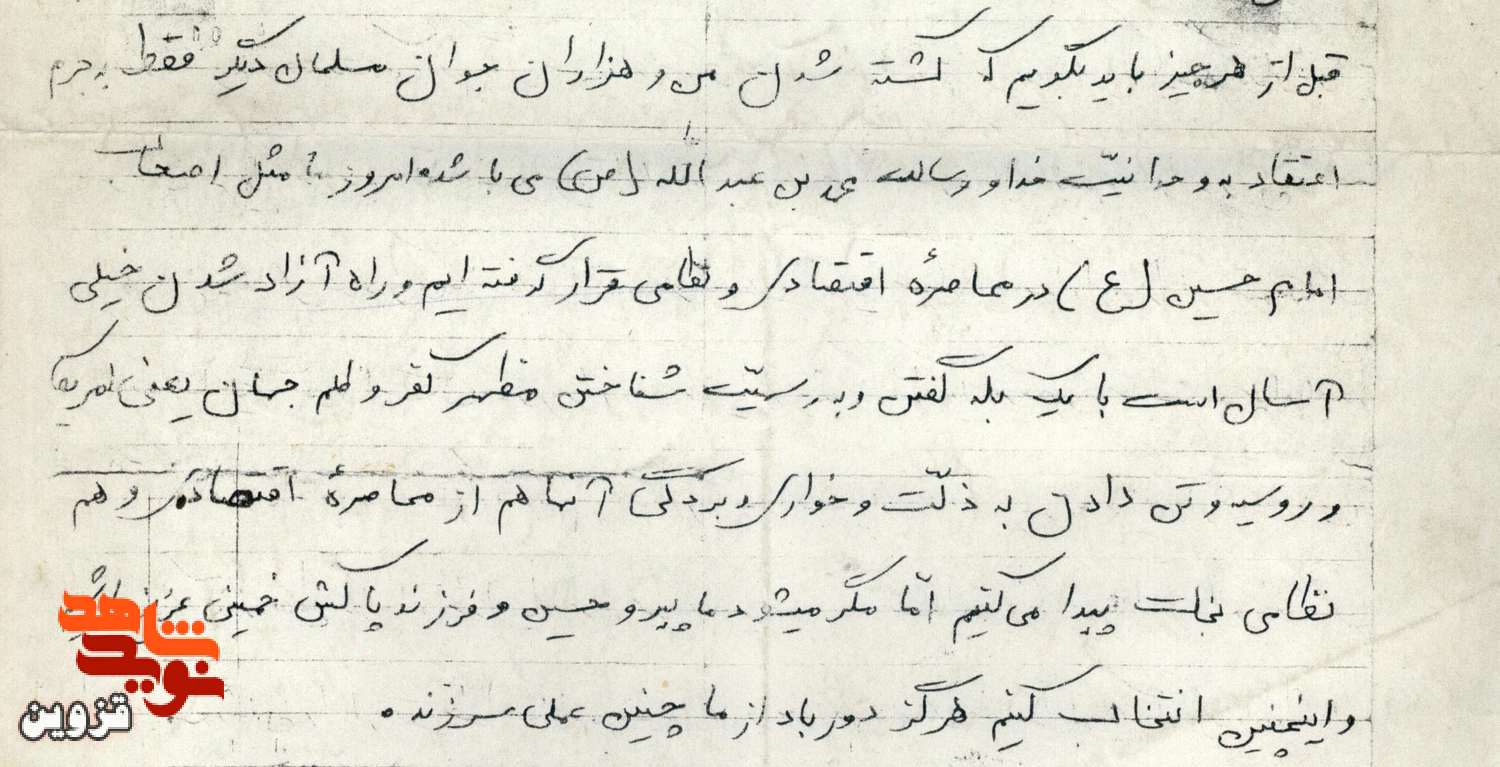 قبل از هر چیز باید بگویم که کشته شدن من و هزاران جوان مسلمان دیگر فقط به جرم
اعتقاد به وحدانیّت خدا و رسالت محمد بن عبدالله (ص) می باشد امروز ما مثل اصحاب
امام حسین (ع) در محاصرهٔ اقتصادی و نظامی قرار گرفته ایم و راه آزاد شدن خیلی
آسان است با یک بله گفتن و به رسمیّت شناختن مظهر کفر و ظلم جهان یعنی امریکا
و روسیه و تن دادن به ذلّت و خواری و بردگی آنها هم از محاصرهٔ اقتصادی و هم
نظامی نجات پیدا می کنیم امّا مگر میشود ما پیرو حسین و فرزند پاکش خمینی عزیز باشیم
و اینچنین انتخاب کنیم هرگز دور باد از ما چنین عملی سر زند.
نوید شاهد
قزوین